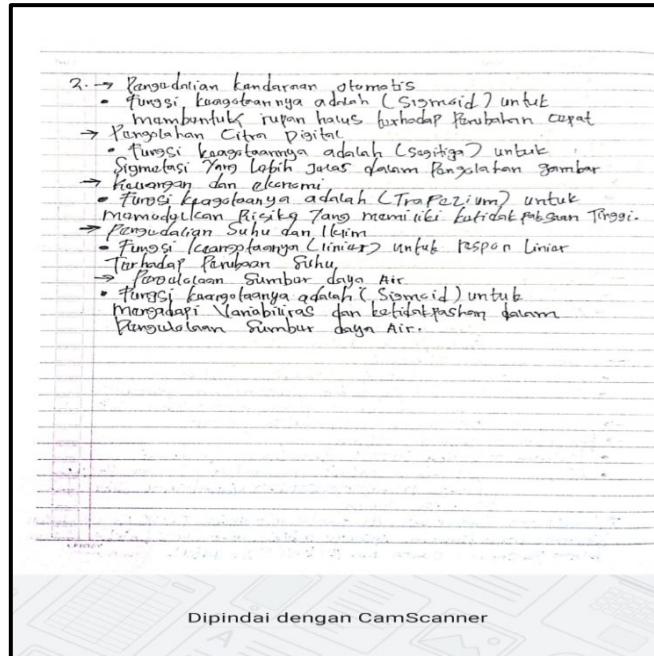 2. → Pengedalian kendaraan otomatis
• Fungsi keagotaannya adalah (Sigmoid) untuk
membentuk rupan halus terhadap Perubahan cepat
→ Pengolahan Citra Digital
• Fungsi keagotaannya adalah (Segitiga) untuk
Sigmetasi Yang Lebih Jelas dalam Pengolahan gambar
→ Keuangan dan ekonomi
• Fungsi keagotaanya adalah (TraPezium) untuk
Memodelkan Risiko Yang memiliki ketidak pastian Tinggi.
→ Pengedalian Suhu dan Iklim
• Fungsi keangotaanya (liniar) untuk respon Liniar
Terhadap Perubaan Suhu
→ Pengelolaan Sumber daya Air
• Fungsi keangotaanya adalah (Sigmoid) untuk
mengadapi Variabiliras dan ketidakpashan dalam
Pengelolaan Sumber daya Air.
Dipindai dengan CamScanner